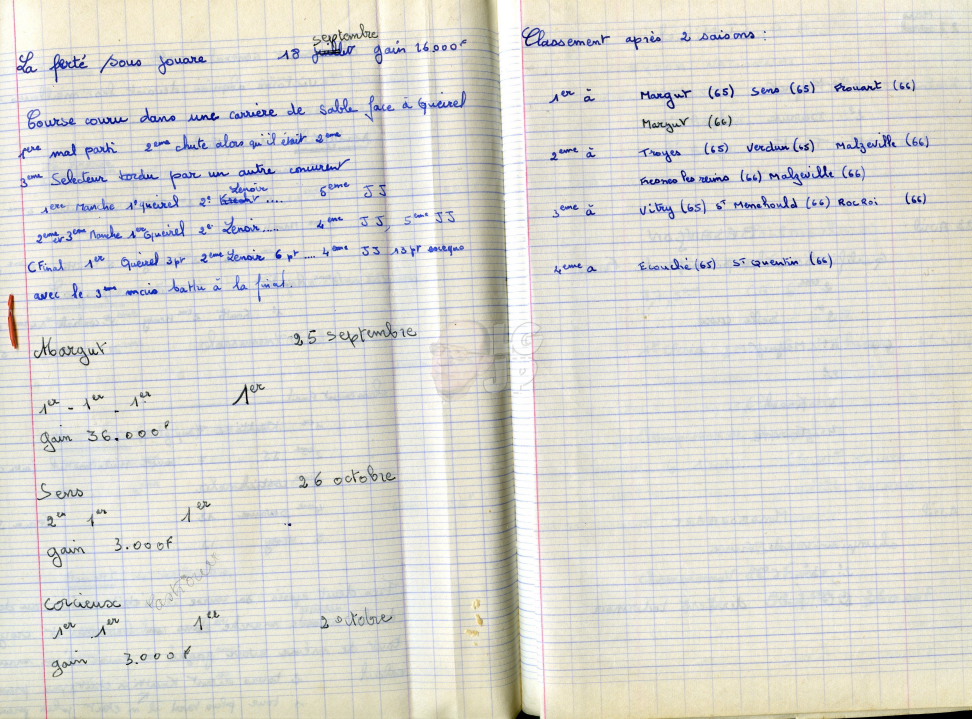 La ferté sous jouare 18 septembre gain 26.000F
Course couru dans une carrière de sable face à Queirel
1ere mal parti 2eme chute alors qu'il était 2eme
3eme Selecteur tordu par un autre concurent
1ere Manche 1° Queirel 2° Lenoir .... 6eme JJ
2eme et 3eme Manche 1er Queirel 2e Lenoir..... 4eme JJ, 5eme JJ
C Final 1er Queirel 3pt 2eme Lenoir 6 pt .... 4eme JJ 13 pt exequo
avec le 3eme mais battu à la final.
Margut 25 septembre
1er - 1er - 1er 1er
gain 36.000F
Sens 26 octobre
2em 1er 1er
gain 3.000F
Corcieux
1er 1er 1er 2 octobre
gain 3.000F
Classement après 2 saisons :
1er à Margut (65) Sens (65) Frouart (66)
Margut (66)
2eme à Troyes (65) Verdun (65) Malzeville (66)
Fresnes les reims (66) Malzeville (66)
3eme à Vitry (65) St Menehould (66) Rocroi (66)
4eme a Ecouché (65) St Quentin (66)